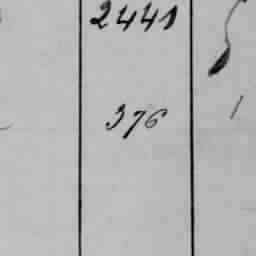 2441
376